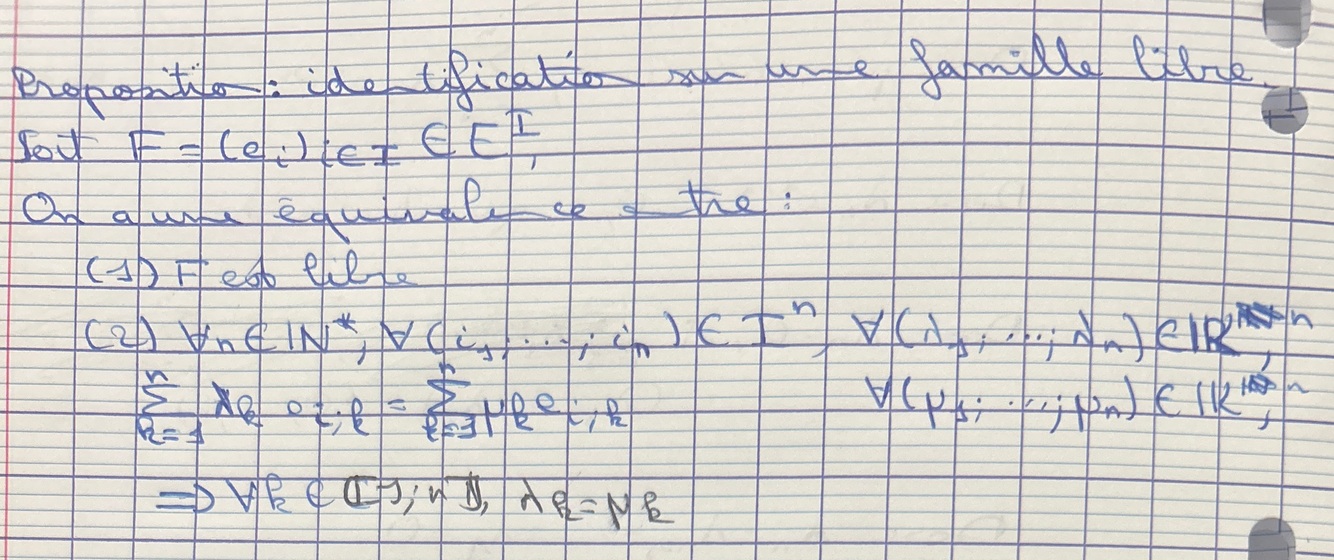 Proposition : identification sur une famille libre.
Soit F = (e_i)_{i∈I} ∈ E^I,
On a une équivalence entre :
(1) F est libre
(2) ∀n∈ℕ*, ∀(i_1; ...; i_n) ∈ I^n, ∀(λ_1; ...; λ_n) ∈ 𝕂^n,
∑_{k=1}^{n} λ_k e_{i,k} = ∑_{k=1}^{n} μ_k e_{i,k} ∀(μ_1; ...; μ_n) ∈ 𝕂^n,
⇒ ∀k ∈ ⟦1; n⟧, λ_k = μ_k